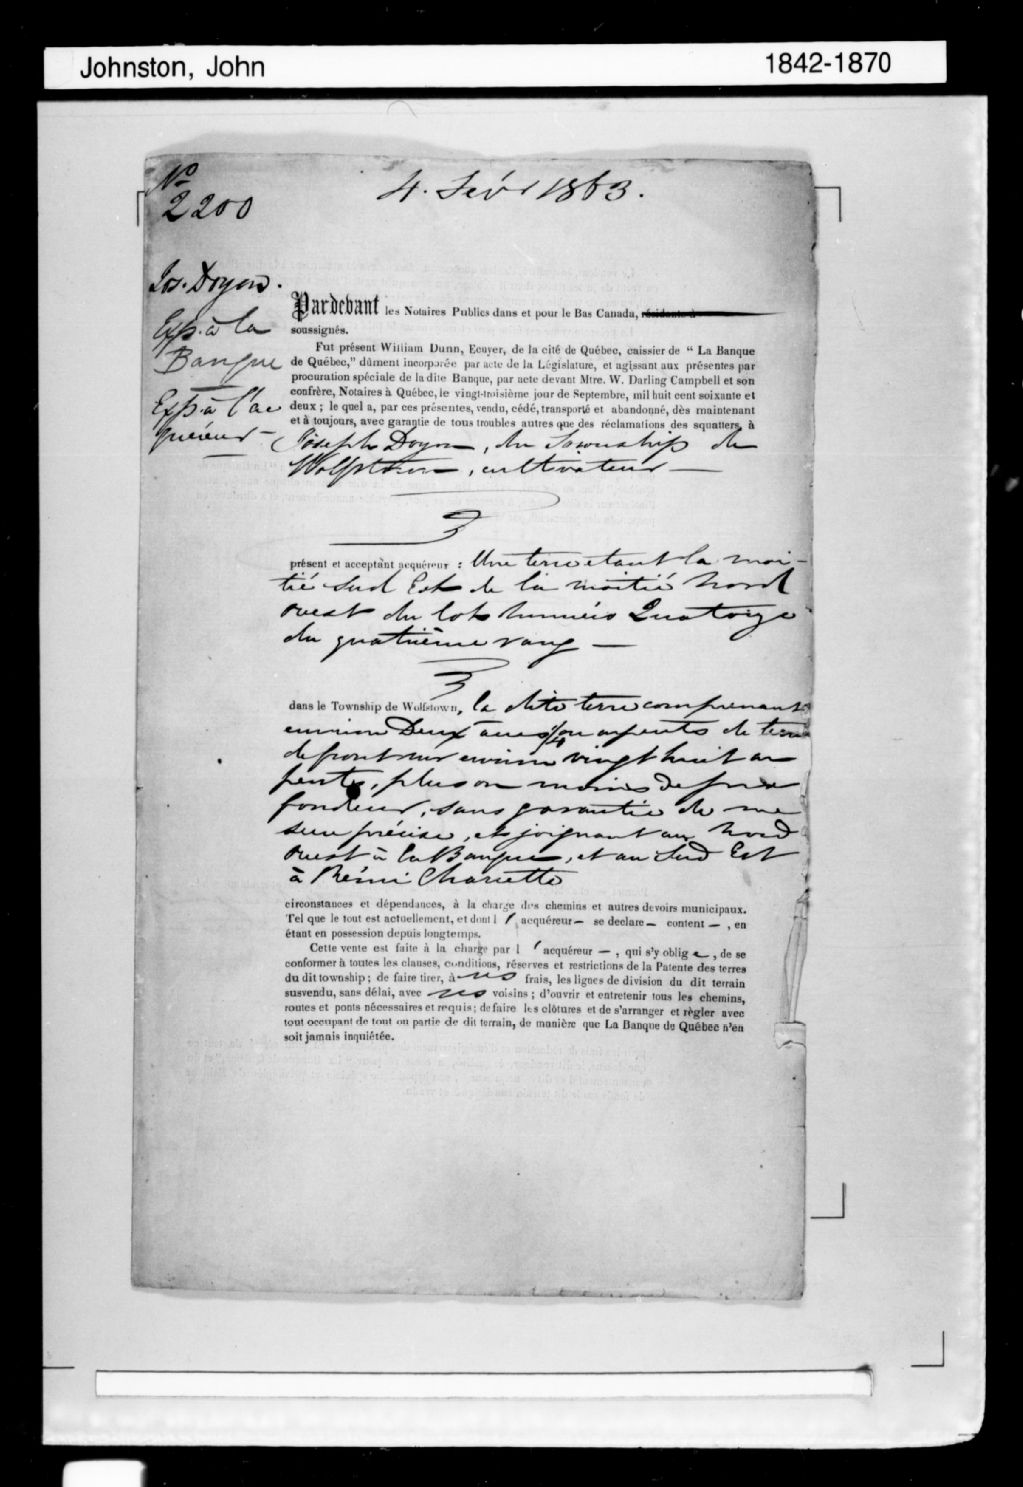 Johnston, John 1842-1870
No
2200
4. Fév. 1863.
Jos. Doyon.
Exp. à la
Banque
Exp. à l'ac
quéreur —
Pardevant les Notaires Publics dans et pour le Bas Canada, résidants à
soussignés.
Fut présent William Dunn, Ecuyer, de la cité de Québec, caissier de “ La Banque
de Québec,” dûment incorporée par acte de la Législature, et agissant aux présentes par
procuration spéciale de la dite Banque, par acte devant Mtre. W. Darling Campbell et son
confrère, Notaires à Québec, le vingt-troisième jour de Septembre, mil huit cent soixante et
deux ; le quel a, par ces présentes, vendu, cédé, transporté et abandonné, dès maintenant
et à toujours, avec garantie de tous troubles autres que des réclamations des squatters, à
Joseph Doyon, du Township de
Wolfstown, cultivateur —
présent et acceptant acquéreur : Une terre etant la moi-
tié Sud Est de la moitié Nord
ouest du lot numéro Quatorze
du quatrième rang —
dans le Township de Wolfstown, la dite terre comprenant
environ Deux acres 1/4 ou arpents de terre
de front sur environ vingt huit ar
pents, plus ou moins de pro
fondeur, sans garantie de me
sure précise, et joignant au Nord
ouest à la Banque, et au Sud Est
à Rémi Charette
circonstances et dépendances, à la charge des chemins et autres devoirs municipaux.
Tel que le tout est actuellement, et dont l ' acquéreur — se declare — content — , en
étant en possession depuis longtemps.
Cette vente est faite à la charge par l ' acquéreur — , qui s'y oblig e , de se
conformer à toutes les clauses, conditions, réserves et restrictions de la Patente des terres
du dit township ; de faire tirer, à ses frais, les lignes de division du dit terrain
susvendu, sans délai, avec ses voisins ; d'ouvrir et entretenir tous les chemins,
routes et ponts nécessaires et requis ; de faire les clôtures et de s'arranger et règler avec
tout occupant de tout ou partie de dit terrain, de manière que La Banque de Québec n'en
soit jamais inquiétée.